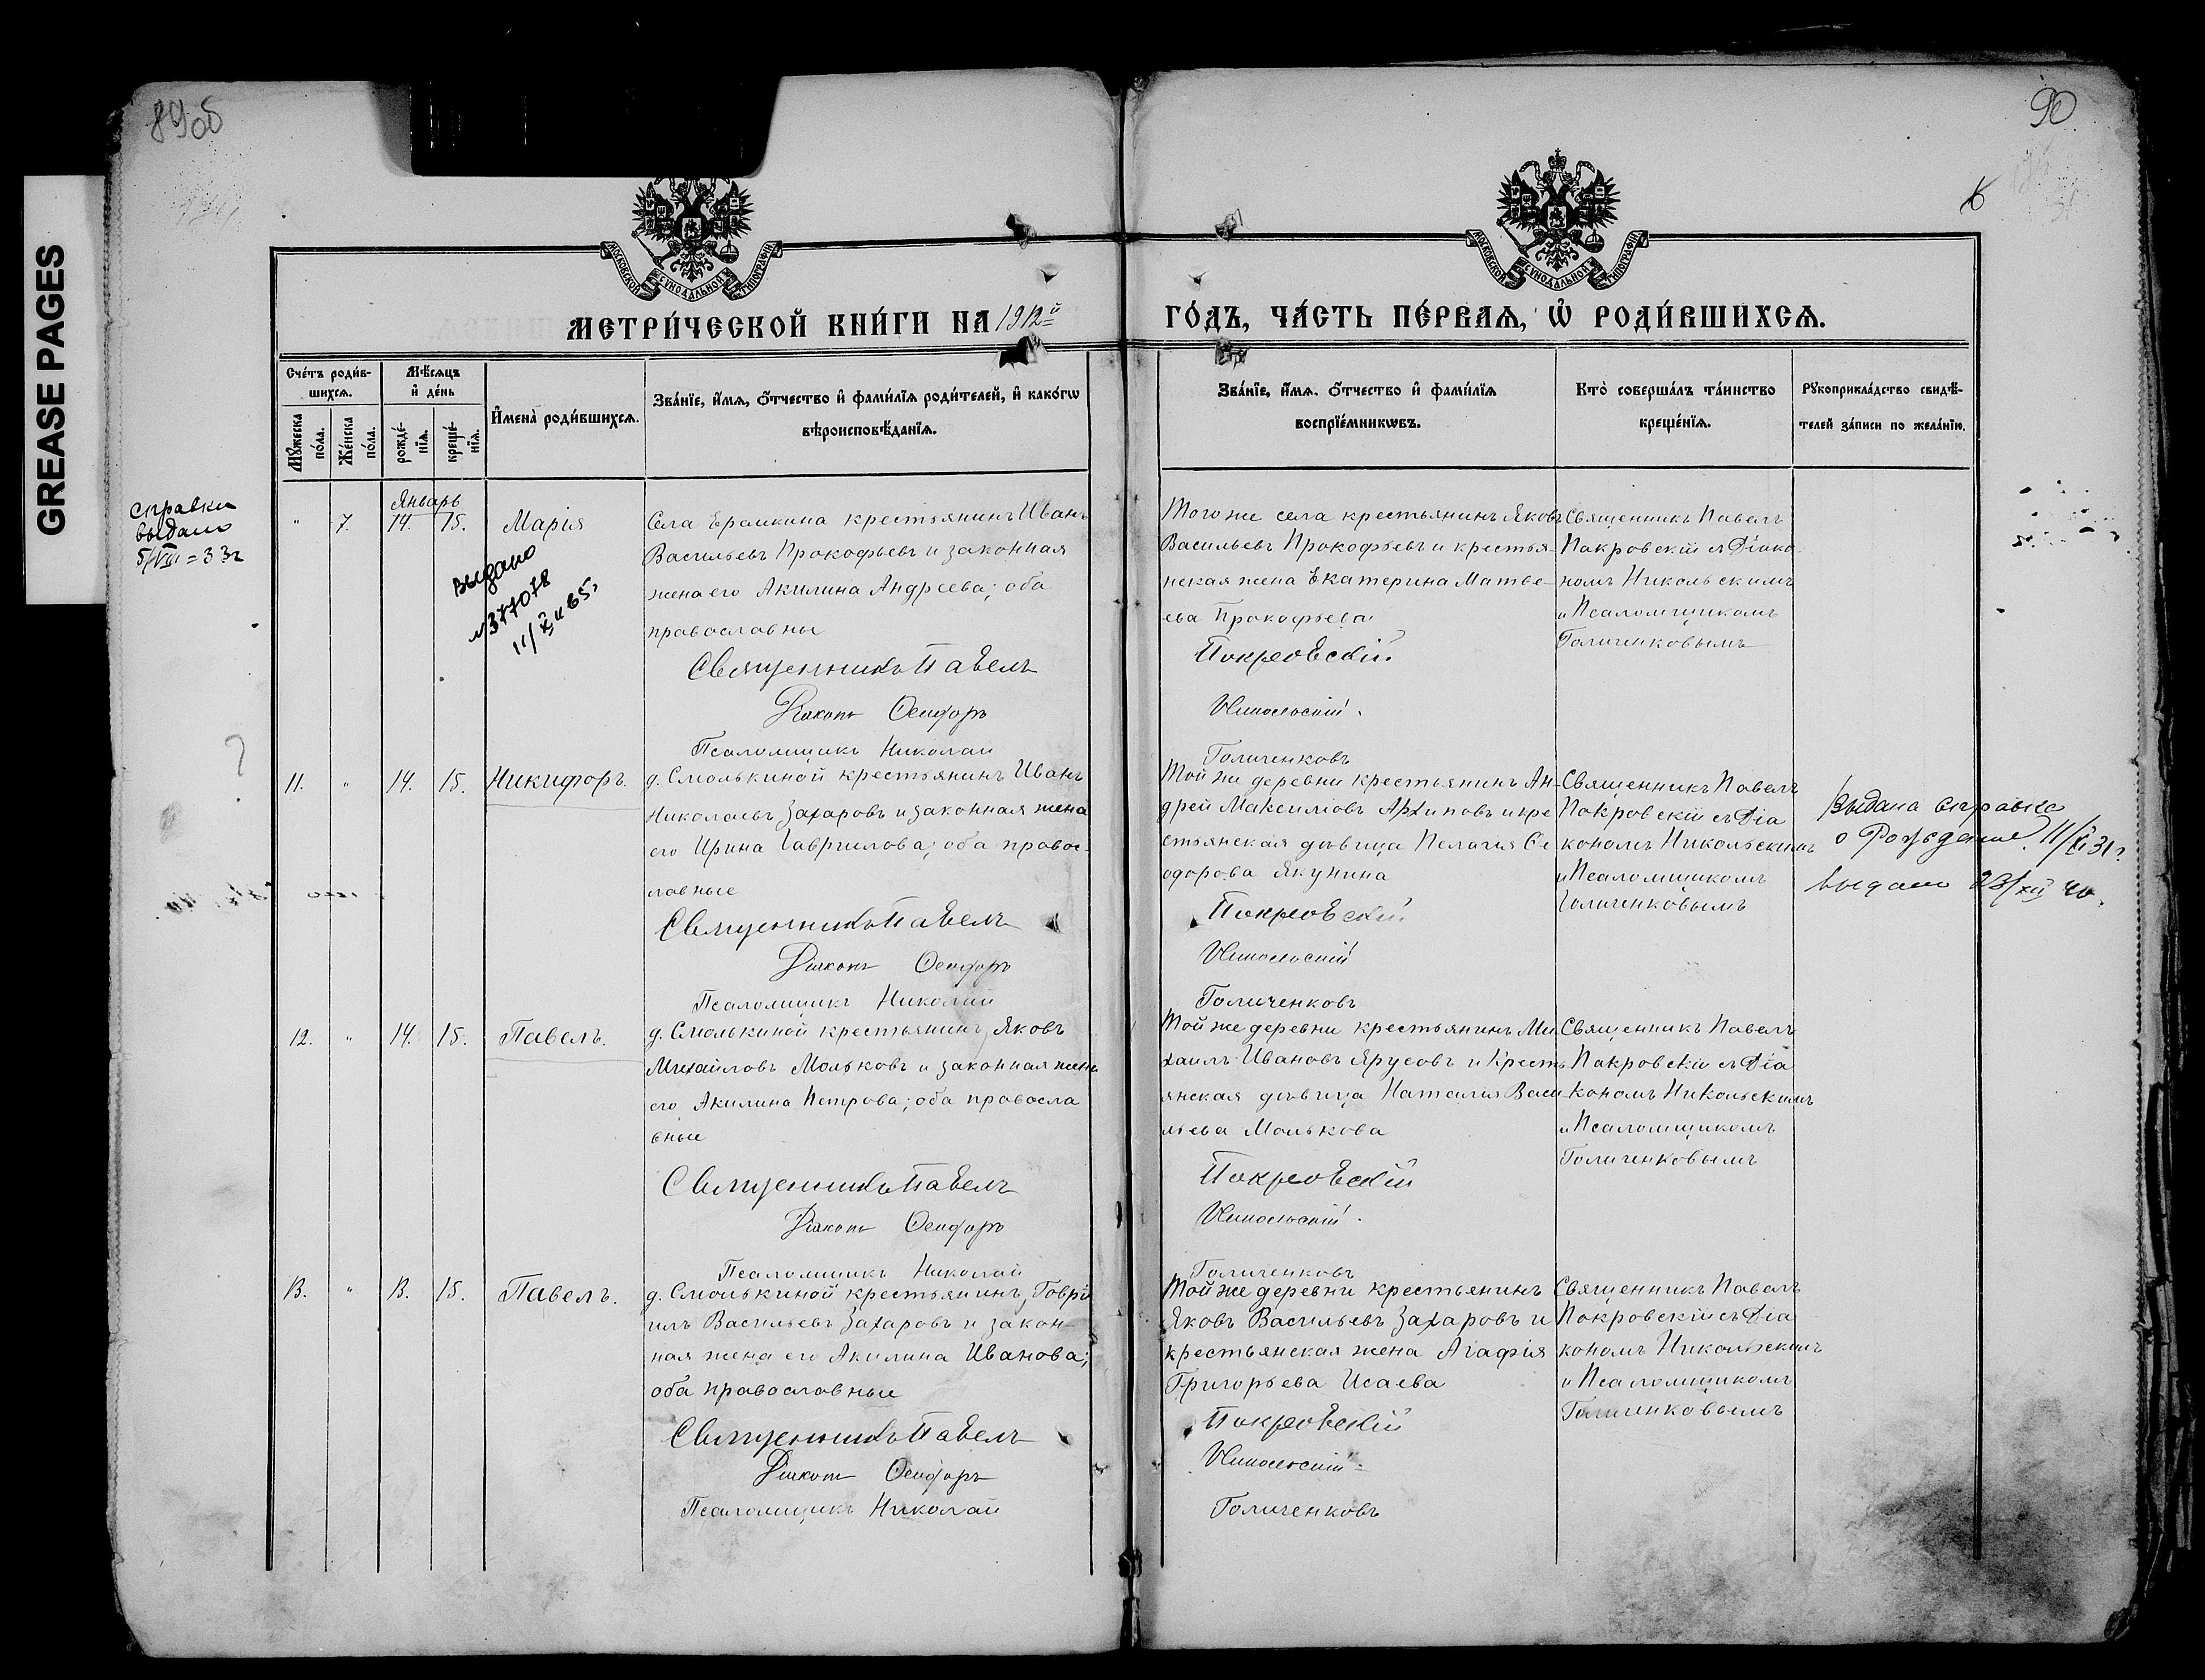 GREASE PAGES
90
МОСКОВСКОЙ СѴНОДАЛЬНОЙ ТИПОГРАФІИ
МОСКОВСКОЙ СѴНОДАЛЬНОЙ ТИПОГРАФІИ
МЕТРИ́ЧЕСКОЙ КНИ́ГИ НА 1912й
ГО́ДЪ, ЧА́СТЬ ПЕ́РВАѦ, Ѽ РОДИ́ВШИХСѦ.
Сче́тъ роди́в-
шихсѧ.
Мѣ́сѧцъ
и҆ де́нь
Мꙋ́жеска по́ла.
Же́нска по́ла.
рожде́-нїѧ.
креще́-нїѧ.
И҆мена̀ роди́вшихсѧ.
Зва́нїе, и҆́мѧ, ѻ҆́тчество и҆ фами́лїѧ роди́телей, и҆ како́гѡ
вѣроисповѣ́данїѧ.
Зва́нїе, и҆́мѧ, ѻ҆́тчество и҆ фами́лїѧ
воспрїе́мникѡвъ.
Кто̀ соверша́лъ та́инство
креще́нїѧ.
Рꙋкоприкла́дство свидѣ́-
телей за́писи по жела́нїю.
справки
выдано
5/VIII=33г
Январь
" 7. 14. 15. Марія
выдано
№377078
Села Ераикина крестьянинъ Иванъ
Васильевъ Прокофьевъ и законная
жена его Акилина Андреева; оба
православны
Священникъ Павелъ
Діаконъ Ѳеодоръ
Псаломщикъ Николай
Того же села крестьянинъ Яковъ
Васильевъ Прокофьевъ и крестья-
нская жена Екатерина Матве-
ева Прокофьева
Покровскій
Никольскій.
Голиченковъ
Священникъ Павелъ
Покровскій съ Діако
номъ Никольскимъ
и Псаломщикомъ
Голиченковымъ
11. " 14. 15. Никифоръ.
д. Смолькиной крестьянинъ Иванъ
Николаевъ Захаровъ и законная жена
его Ирина Гаврилова; оба правос-
лавные
Священникъ Павелъ
Діаконъ Ѳеодоръ
Псаломщикъ Николай
Той же деревни крестьянинъ Ан-
дрей Максимовъ Архиповъ и кре
стьянская дѣвица Пелагія Ѳе
одорова Якунина
Покровскій
Никольскій
Голиченковъ
Священникъ Павелъ
Покровскій съ Діа
кономъ Никольскимъ
и Псаломщикомъ
Голиченковымъ
Выдана справка
о Рождение. 11/XI 31г.
выдано 23/XII 40.
12. " 14. 15. Павелъ.
д. Смолькиной крестьянинъ Яковъ
Михайловъ Мольковъ и законная жена
его Акилина Петрова; оба правосла
вные
Священникъ Павелъ
Діаконъ Ѳеодоръ
Псаломщикъ Николай
Той же деревни крестьянинъ Ми
хаилъ Ивановъ Ярусовъ и Кресть
янская дѣвица Наталія Васи
льева Молькова
Покровскій
Никольскій.
Голиченковъ
Священникъ Павелъ
Покровскій съ Діа
кономъ Никольскимъ
и Псаломщикомъ
Голиченковымъ
13. " 13. 15. Павелъ.
д. Смолькиной крестьянинъ, Гаврі
илъ Васильевъ Захаровъ и закон-
ная жена его Акилина Иванова;
оба православные
Священникъ Павелъ
Діаконъ Ѳеодоръ
Псаломщикъ Николай
Той же деревни крестьянинъ
Яковъ Васильевъ Захаровъ и
крестьянская жена Агафія
Григорьева Исаева
Покровскій
Никольскій
Голиченковъ
Священникъ Павелъ
Покровскій съ Діа
кономъ Никольскимъ
и Псаломщикомъ
Голиченковымъ